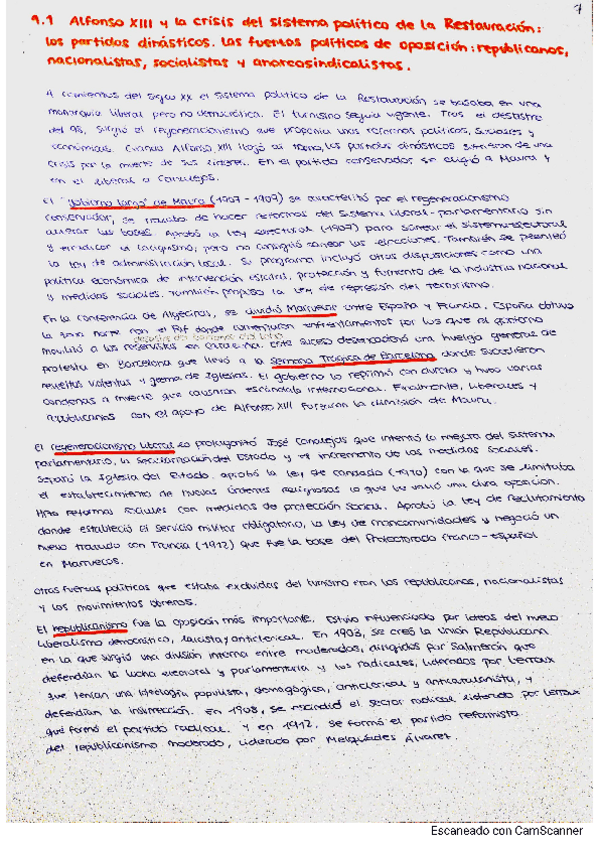 7
9.1 Alfonso XIII y la crisis del sistema político de la Restauración:
los partidos dinásticos. Las fuerzas políticas de oposición: republicanos,
nacionalistas, socialistas y anarcosindicalistas.
A comienzos del siglo XX el sistema político de la Restauración se basaba en una
monarquía liberal pero no democrática. El turnismo seguía vigente. Tras el desastre
del 98, surgió el regeneracionismo que proponía unas reformas políticas, sociales y
económicas. Cuando Alfonso XIII llegó al trono, los partidos dinásticos sufrieron de una
crisis por la muerte de sus líderes. En el partido conservador se eligió a Maura y
en el liberal a Canalejas.
El "gobierno largo" de Maura (1907-1909) se caracterizó por el regeneracionismo
conservador, se trataba de hacer reformas del sistema liberal-parlamentario sin
alterar las bases. Aprobó la Ley electoral (1907) para sanear el sistema electoral
y erradicar el caciquismo, pero no consiguió sanear las elecciones. También se
la Ley de administración local. Su programa incluyó otras disposiciones como una
política económica de intervención estatal, protección y fomento de la industria nacional
y medidas sociales. También propuso la Ley de represión del terrorismo.
En la conferencia de Algeciras, se dividió Marruecos entre España y Francia. España obtuvo
la zona norte con el Rif donde comenzaron enfrentamientos por los que el gobierno
movilizó a los reservistas en Cataluña. Este suceso desencadenó una huelga general de
protesta en Barcelona que llevó a la Semana Trágica de Barcelona donde sucedieron
revueltas violentas y quema de iglesias. El gobierno lo reprimió con dureza y hubo varias
condenas a muerte que causaron escándalo internacional. Finalmente, liberales y
republicanos con el apoyo de Alfonso XIII forzaron la dimisión de Maura.
El regeneracionismo liberal lo protagonizó José Canalejas que intentó la mejora del sistema
parlamentario, la secularización del Estado y el incremento de las medidas sociales.
Separó la iglesia del Estado. aprobó la Ley de Candado (1910) con la que se limitaba
el establecimiento de nuevas órdenes religiosas lo que le valió una dura oposición.
Hizo reformas sociales con medidas de protección social. Aprobó la Ley de reclutamiento
donde estableció el servicio militar obligatorio, la Ley de mancomunidades y negoció un
nuevo tratado con Francia (1912) que fue la base del Protectorado franco-español
en Marruecos.
Otras fuerzas políticas que estaba excluidas del turnismo eran los republicanos, nacionalistas
y los movimientos obreros.
El republicanismo fue la oposición más importante. Estuvo influenciado por ideas del nuevo
liberalismo democrático, laicista y anticlerical. En 1903, se creó la Unión Republicana
en la que surgió una división interna entre moderados, dirigidos por Salmerón que
defendían la lucha electoral y parlamentaria y los radicales, liderados por Lerroux
que tenían una ideología populista, demagógica, anticlerical y anticatalanista, y
defendían la insurrección. En 1908, se escindió el sector radical liderado por Lerroux
que formó el partido radical. Y en 1912, se formó el partido reformista
del republicanismo moderado, liderado por Melquíades Álvarez.
Escaneado con CamScanner